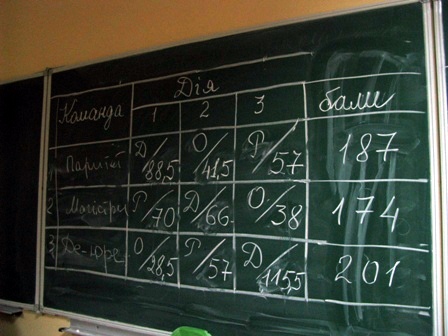 Команда Дія бали
1 2 3
1 Паритет Д/88,5 О/41,5 Р/57 187
2 Магістри Р/70 Д/66 О/38 174
3 Де-юре О/28,5 Р/57 Д/115,5 201